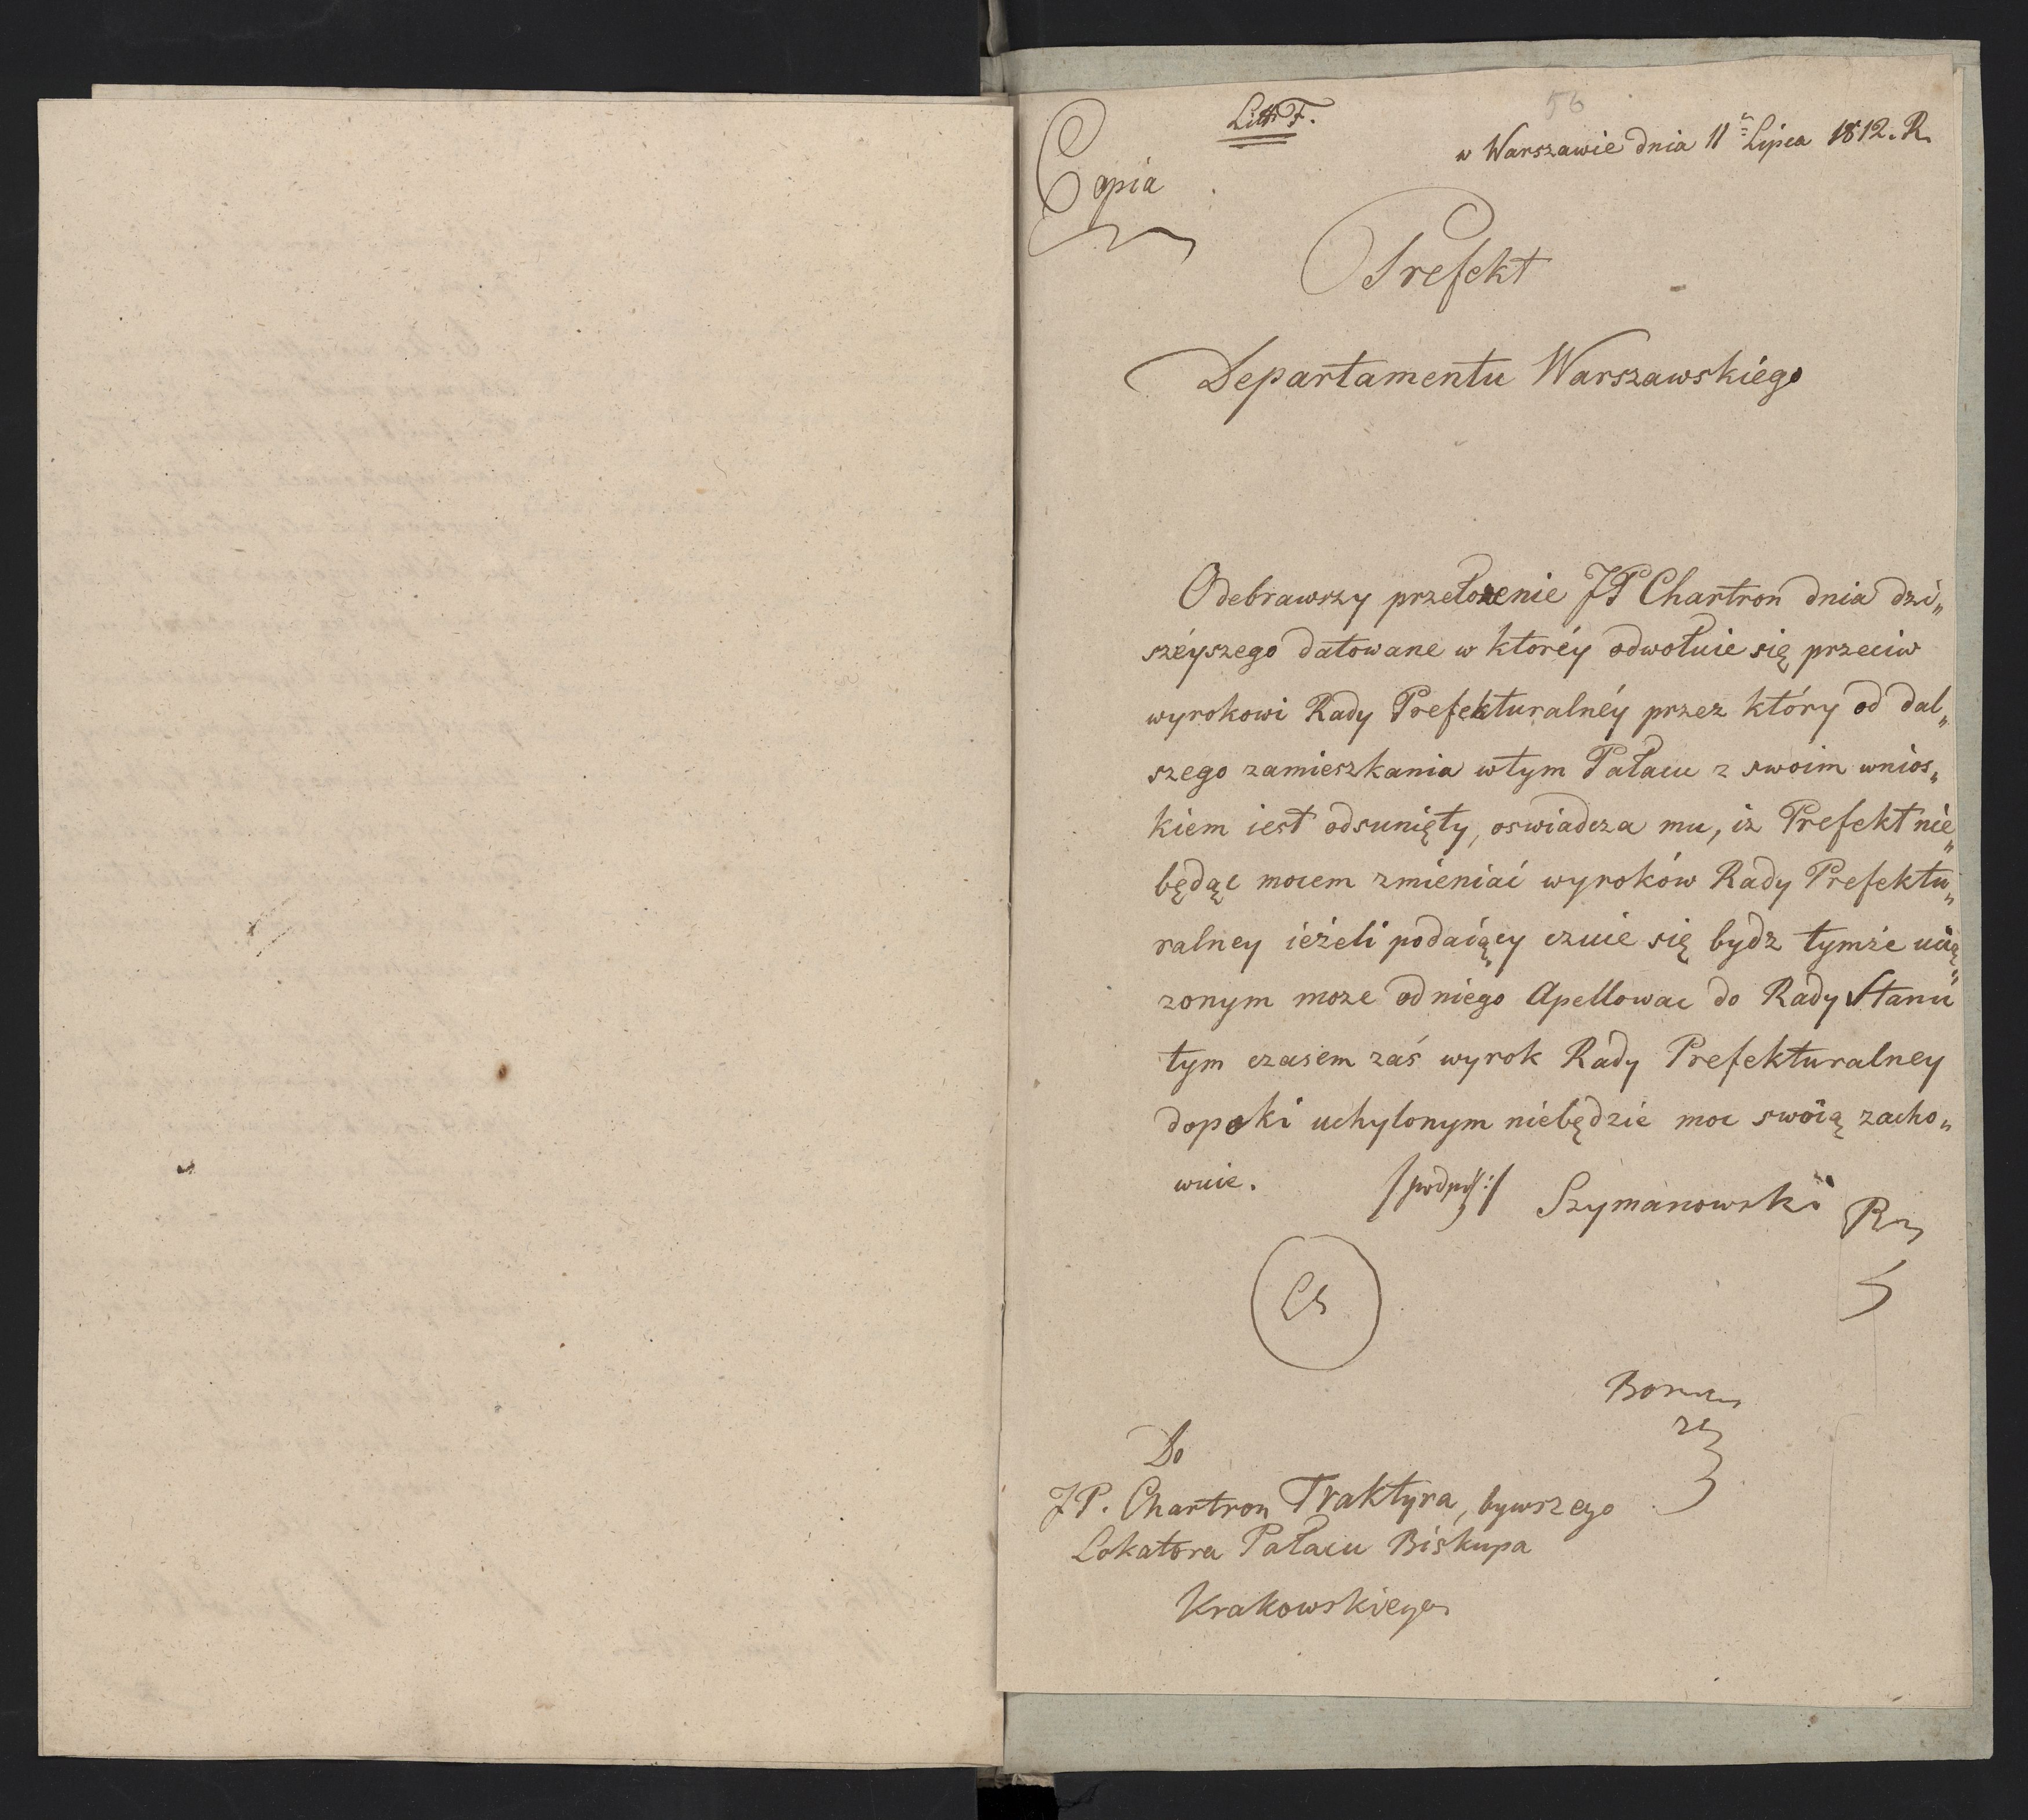 Litt F.
56
w Warszawie dnia 11 Lipca 1812. R.
Copia
Prefekt
Departamentu Warszawskiego
Odebrawszy przełozenie JP Chartron dnia dzi„
széyszego datowane w któréy odwołuie się przeciw
wyrokowi Rady Prefekturalnéy przez który od dal„
szego zamieszkania w tym Pałacu z swoim wnios„
kiem iest odsunięty, oswiadcza mu, iz Prefekt nie„
będąc mocem zmieniać wyroków Rady Prefektu„
ralney ieżeli podaiący czuie się bydz tymże ucią„
zonym moze od niego Apellowac do Rady Stanu
tym czasem zaś wyrok Rady Prefekturalney
dopoki uchylonym niebędzie moc swoią zacho„
wuie.
/podpis:/ Szymanowski
LS
Do
JP. Chartron Traktyra, bywszego
Lokatora Pałacu Biskupa
Krakowskiego